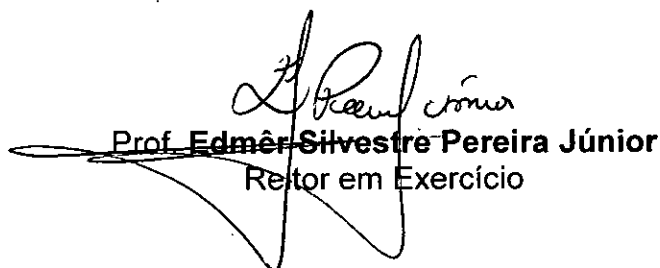 Prof. Edmêr Silvestre Pereira Júnior
Reitor em Exercício